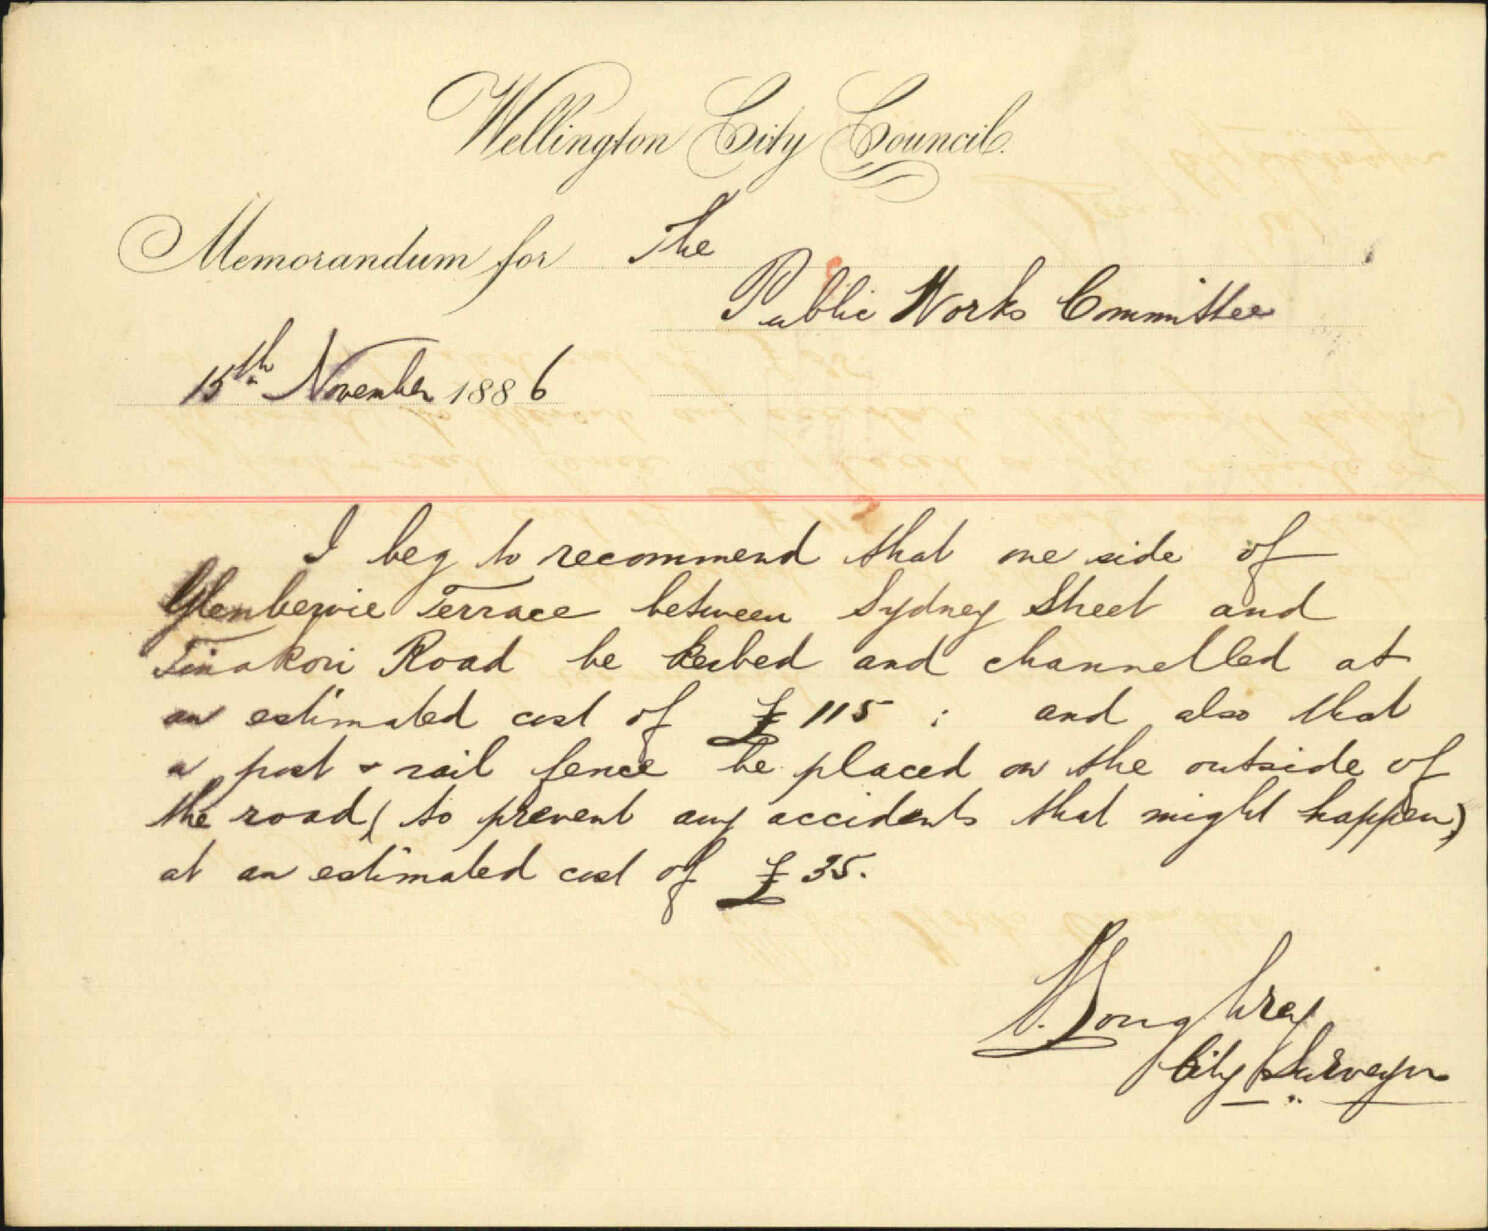 Wellington City Council.
Memorandum for The
Public Works Committee
15th November 1886
I beg to recommend that one side of
Glenbervie Terrace between Sydney Street and
Tinakori Road be kerbed and channelled at
an estimated cost of £115 ; and also that
a post & rail fence be placed on the outside of
the road, (to prevent any accidents that might happen)
at an estimated cost of £35.
Loughrey
City Surveyor